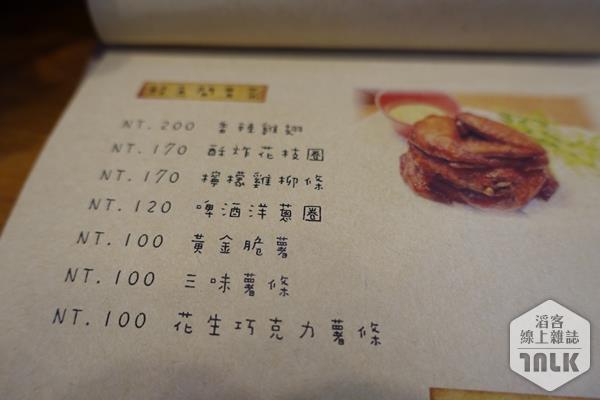 NT. 200 香辣雞翅
NT. 170 酥炸花枝圈
NT. 170 檸檬雞柳條
NT. 120 啤酒洋蔥圈
NT. 100 黃金脆薯
NT. 100 三味薯條
NT. 100 花生巧克力薯條
滔客
線上雜誌
TALK